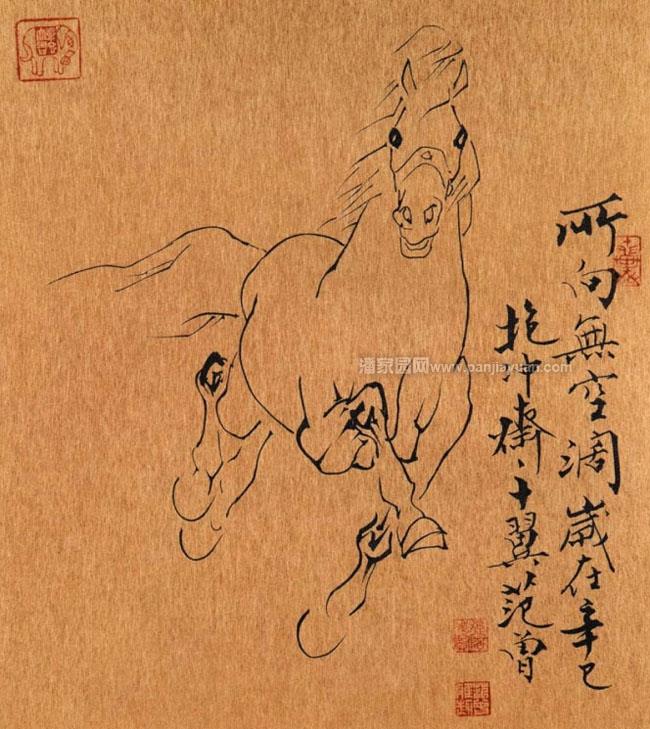 所向無空闊歲在辛巳
抱冲齋十翼范曾
潘家园网 www.panjiayuan.com